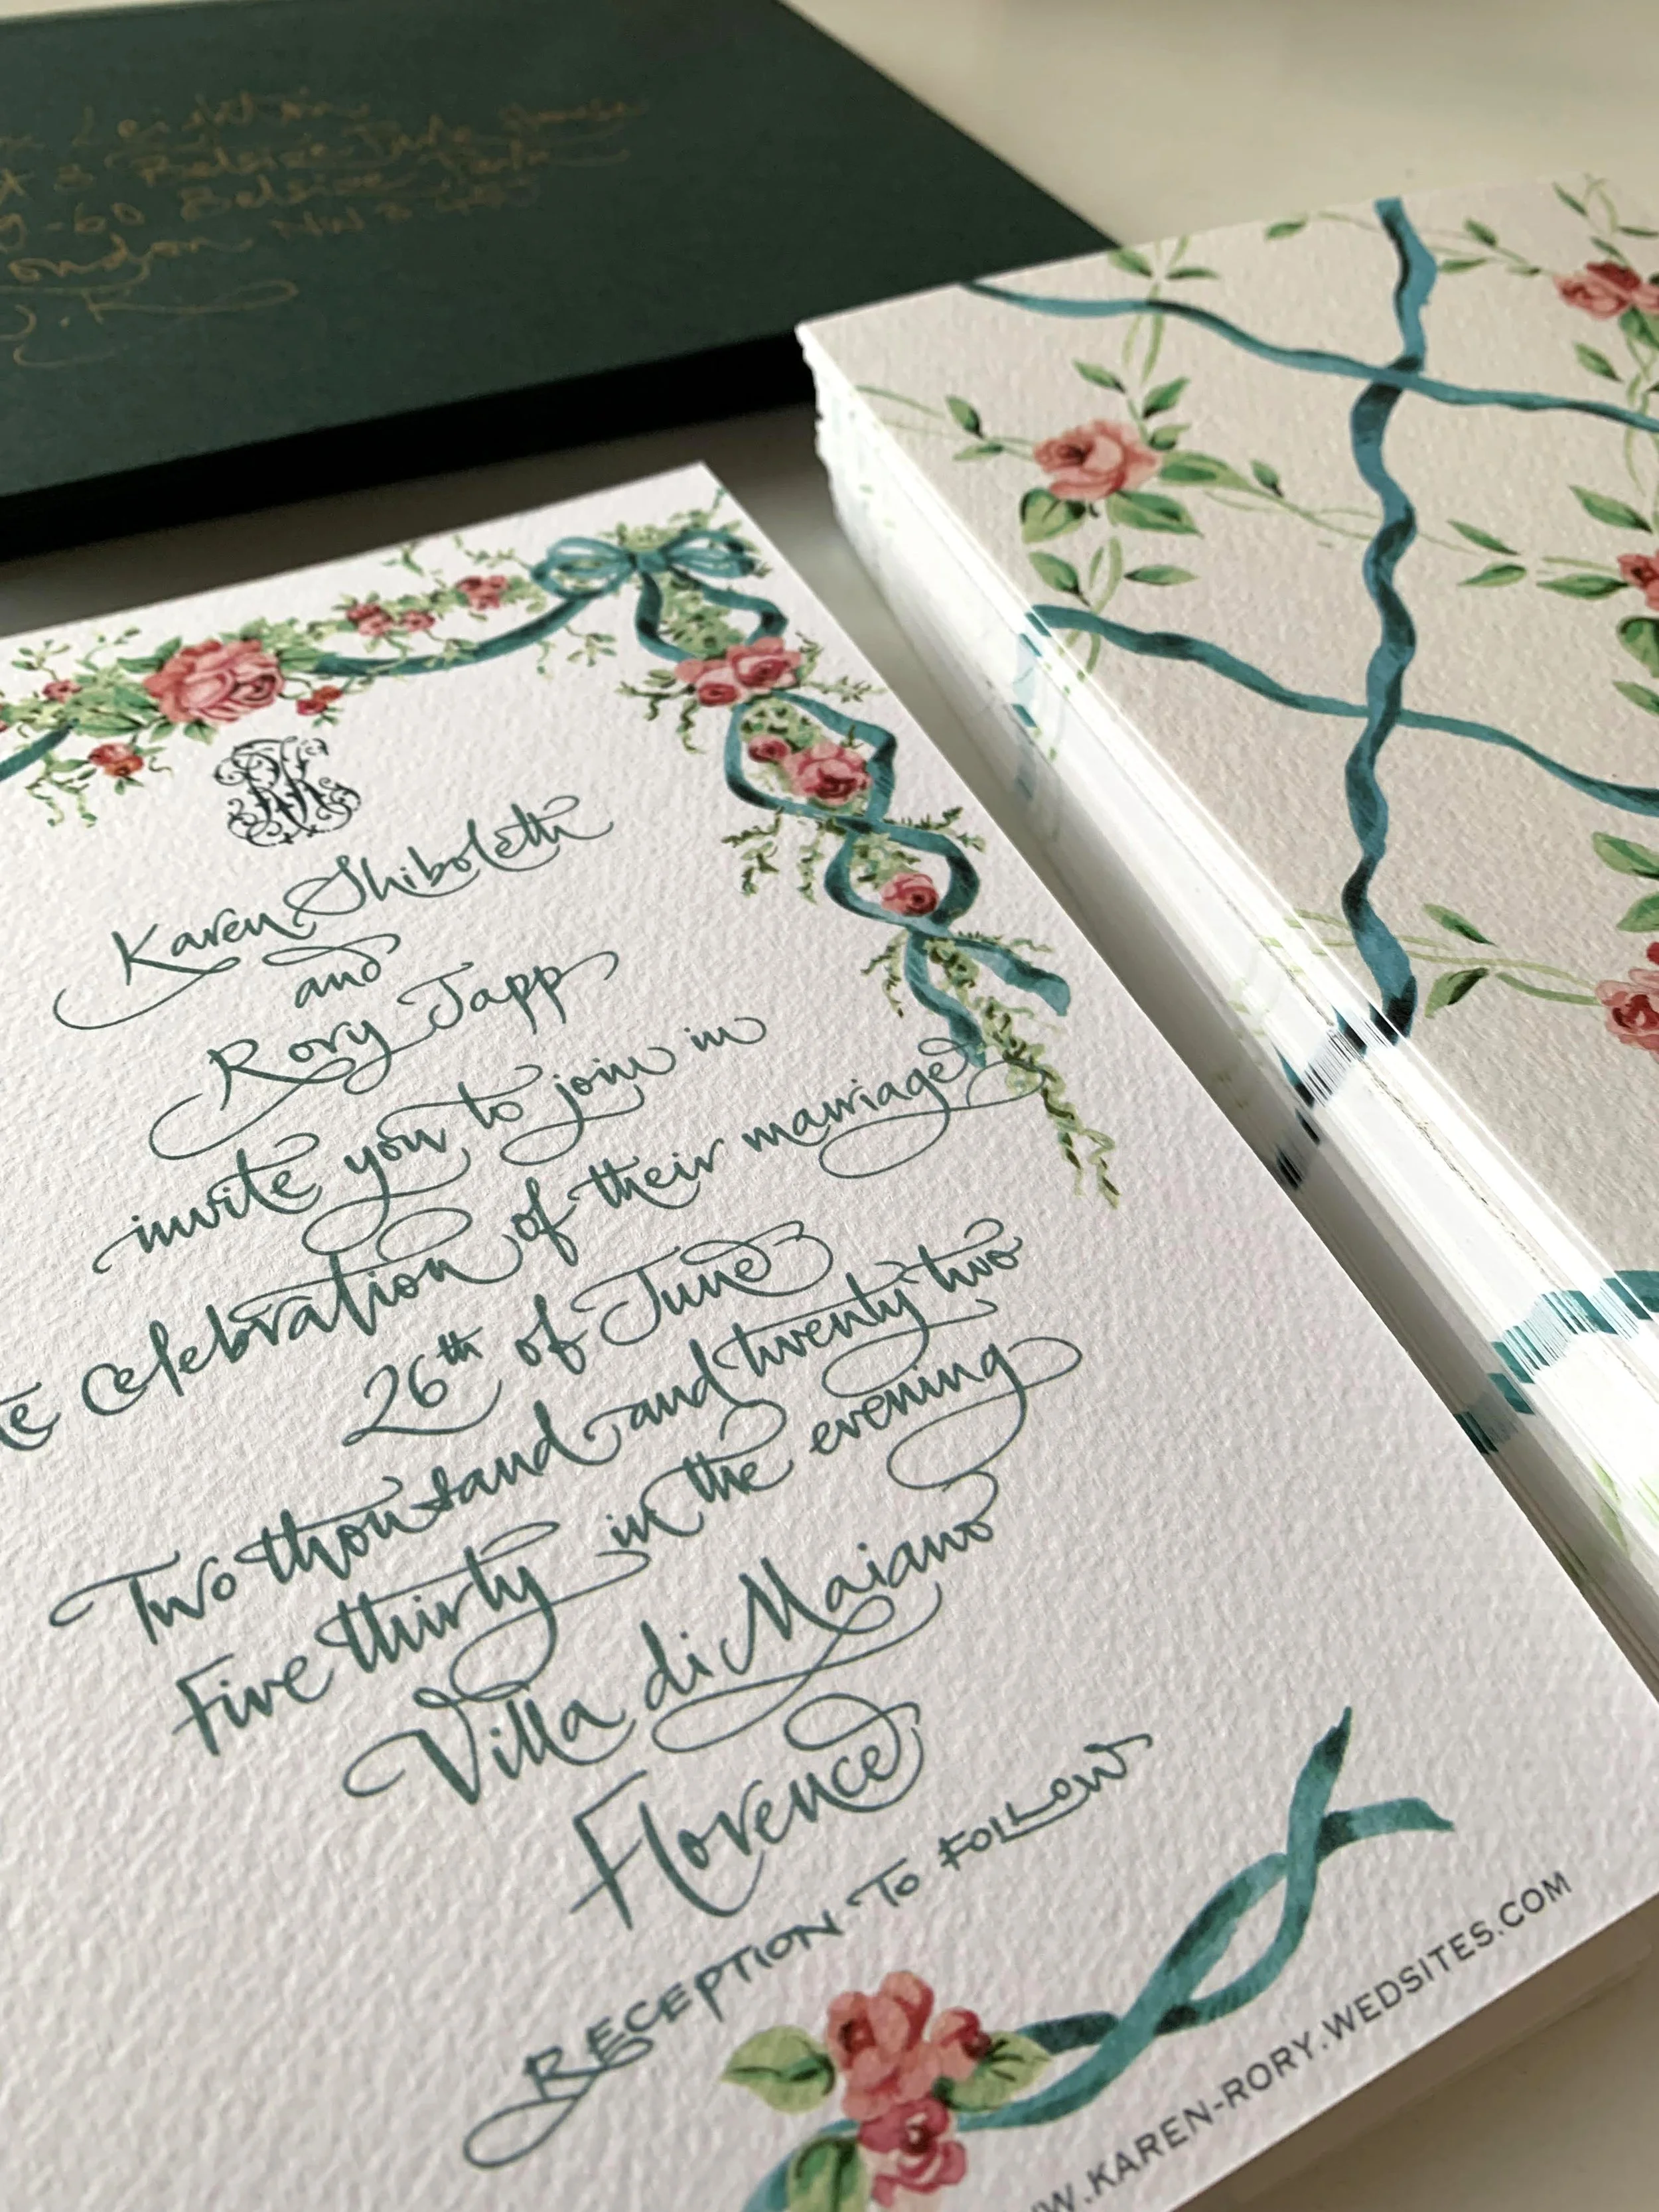 Leighton
8 Belsize Park
-60 Belsize Park
London NW3
U.K
Karen Shiboleth
and
Rory Tapp
invite you to join in
celebration of their marriage
26th of June
Two thousand and twenty two
Five thirty in the evening
Villa di Maiano
Florence
RECEPTION TO FOLLOW
W.KAREN-RORY.WEDSITES.COM